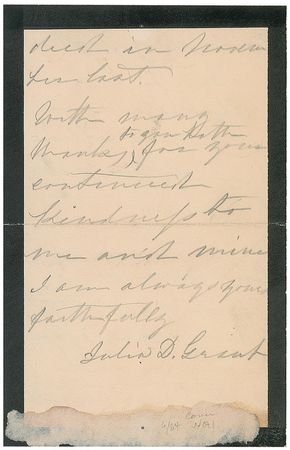 died in Novem
ber last.
With many
to you both
thanks, for your
continued
kindness to
me and mine
I am always yours
faithfully
Julia D. Grant